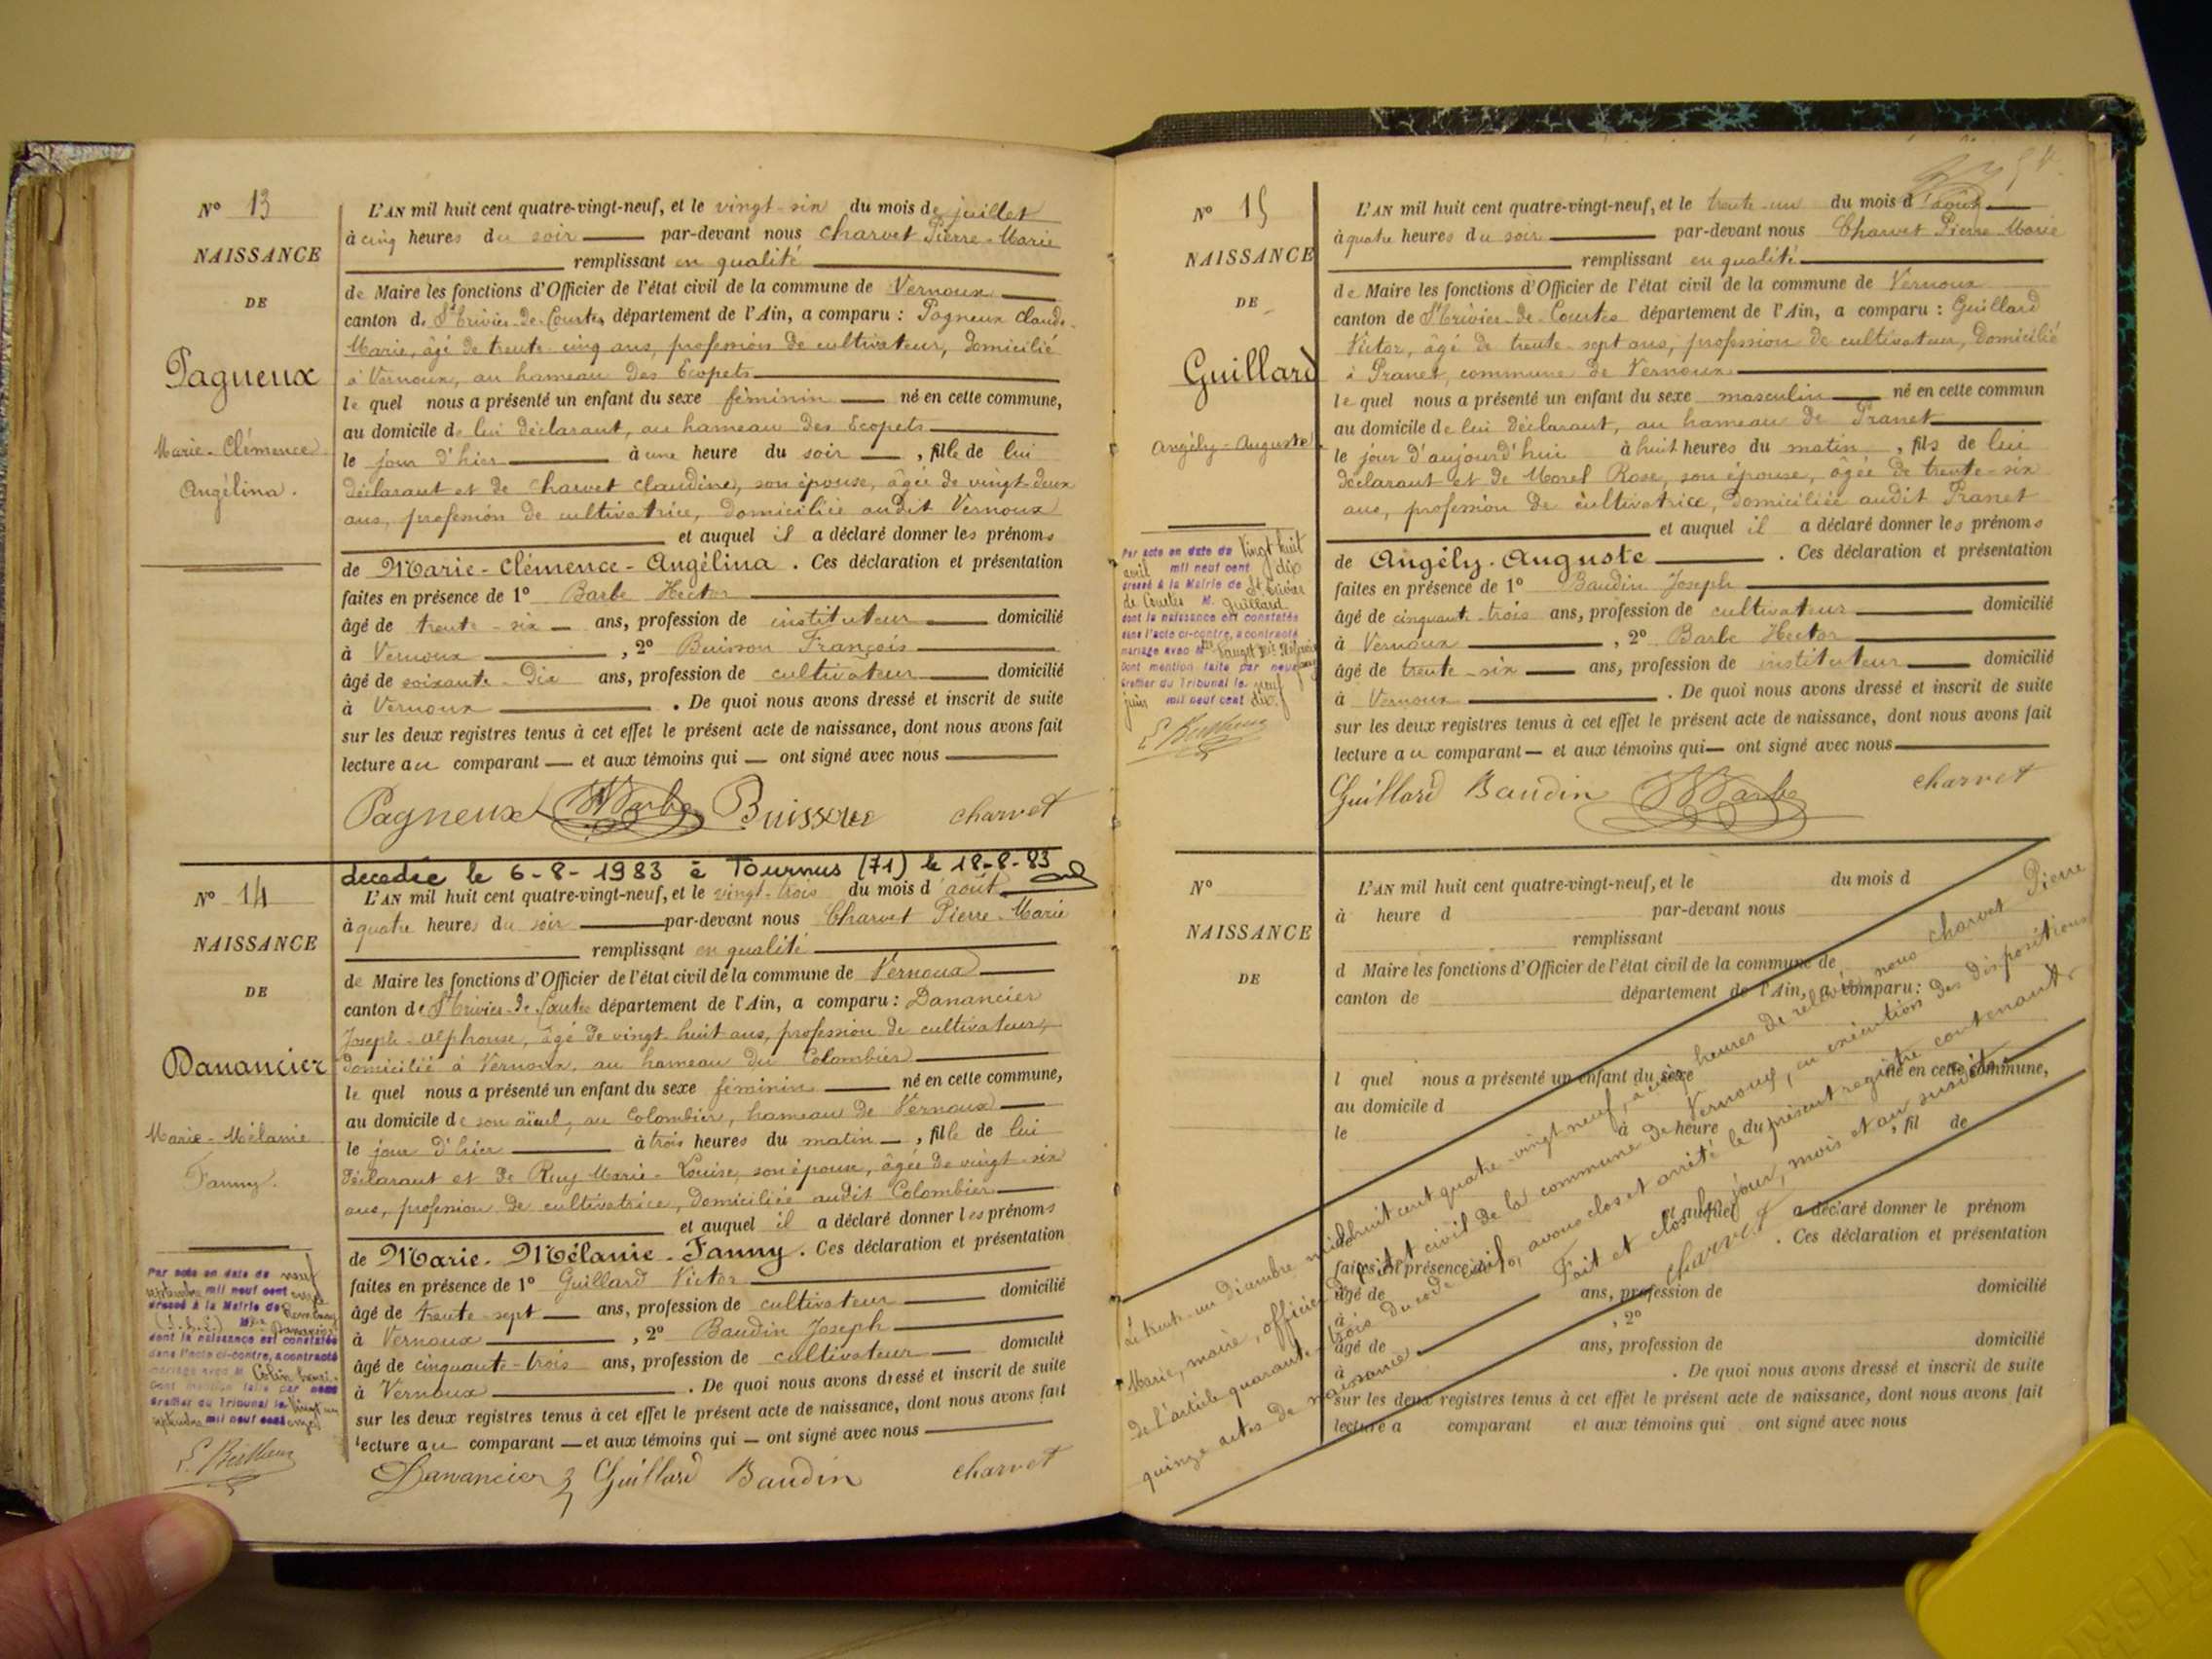 N° 13
NAISSANCE
DE
Pagneux
Marie-Clémence
Angélina.
L'AN mil huit cent quatre-vingt-neuf, et le vingt-six du mois de juillet
à cinq heures du soir par-devant nous Charvet Pierre-Marie
remplissant en qualité
de Maire les fonctions d'Officier de l'état civil de la commune de Vernoux
canton de St Trivier-de-Courtes département de l'Ain, a comparu : Pagneux Claude-
Marie, âgé de trente-cinq ans, profession de cultivateur, domicilié
à Vernoux, au hameau des Ecopets
le quel nous a présenté un enfant du sexe féminin né en cette commune,
au domicile de lui déclarant, au hameau des Ecopets
le jour d'hier à une heure du soir , fille de lui
déclarant et de Charvet Claudine, son épouse, âgée de vingt-deux
ans, profession de cultivatrice, domiciliée audit Vernoux
et auquel il a déclaré donner les prénoms
de Marie-Clémence-Angélina . Ces déclaration et présentation
faites en présence de 1° Barbe Hector
âgé de trente-six ans, profession de instituteur domicilié
à Vernoux , 2° Buisson François
âgé de soixante-dix ans, profession de cultivateur domicilié
à Vernoux . De quoi nous avons dressé et inscrit de suite
sur les deux registres tenus à cet effet le présent acte de naissance, dont nous avons fait
lecture au comparant et aux témoins qui ont signé avec nous
Pagneux HBarbe Buisson charvet
décédée le 6-8-1983 à Tournus (71) le 18-8-83
N° 14
NAISSANCE
DE
Danancier
Marie-Mélanie
Fanny.
L'AN mil huit cent quatre-vingt-neuf, et le vingt-trois du mois d'août
à quatre heures du soir par-devant nous Charvet Pierre-Marie
remplissant en qualité
de Maire les fonctions d'Officier de l'état civil de la commune de Vernoux
canton de St Trivier-de-Courtes département de l'Ain, a comparu : Danancier
Joseph-Alphonse, âgé de vingt-huit ans, profession de cultivateur,
domicilié à Vernoux, au hameau du Colombier
le quel nous a présenté un enfant du sexe féminin né en cette commune,
au domicile de son aïeul, au Colombier, hameau de Vernoux
le jour d'hier à trois heures du matin , fille de lui
déclarant et de Ruy Marie-Louise, son épouse, âgée de vingt-six
ans, profession de cultivatrice, domiciliée audit Colombier
et auquel il a déclaré donner les prénoms
de Marie-Mélanie-Fanny. Ces déclaration et présentation
faites en présence de 1° Guillard Victor
âgé de trente-sept ans, profession de cultivateur domicilié
à Vernoux , 2° Baudin Joseph
âgé de cinquante-trois ans, profession de cultivateur domicilié
à Vernoux . De quoi nous avons dressé et inscrit de suite
sur les deux registres tenus à cet effet le présent acte de naissance, dont nous avons fait
lecture au comparant et aux témoins qui ont signé avec nous
Danancier Guillard Baudin charvet
Par acte en date du neuf
septembre mil neuf cent onze
dressé à la Mairie de Romenay
(S.-&-L.) Mlle Danancier
dont la naissance est constatée
dans l'acte ci-contre, a contracté
mariage avec M. Colin Henri.
Dont mention faite par nous
Greffier du Tribunal le vingt un
septembre mil neuf cent onze
N° 15
NAISSANCE
DE
Guillard
Angély-Auguste
L'AN mil huit cent quatre-vingt-neuf, et le trente-un du mois d'août
à quatre heures du soir par-devant nous Charvet Pierre Marie
remplissant en qualité
de Maire les fonctions d'Officier de l'état civil de la commune de Vernoux
canton de St Trivier-de-Courtes département de l'Ain, a comparu : Guillard
Victor, âgé de trente-sept ans, profession de cultivateur, domicilié
à Pranet, commune de Vernoux
le quel nous a présenté un enfant du sexe masculin né en cette commun
au domicile de lui déclarant, au hameau de Pranet
le jour d'aujourd'hui à huit heures du matin , fils de lui
déclarant et de Morel Rose, son épouse, âgée de trente-six
ans, profession de cultivatrice, domiciliée audit Pranet
et auquel il a déclaré donner les prénoms
de Angély-Auguste . Ces déclaration et présentation
faites en présence de 1° Baudin Joseph
âgé de cinquante-trois ans, profession de cultivateur domicilié
à Vernoux , 2° Barbe Hector
âgé de trente-six ans, profession de instituteur domicilié
à Vernoux . De quoi nous avons dressé et inscrit de suite
sur les deux registres tenus à cet effet le présent acte de naissance, dont nous avons fait
lecture au comparant et aux témoins qui ont signé avec nous
Guillard Baudin HBarbe charvet
Par acte en date du Vingt huit
avril mil neuf cent dix
dressé à la Mairie de St Trivier
de Courtes M. Guillard
dont la naissance est constatée
dans l'acte ci-contre, a contracté
mariage avec Mlle
Dont mention faite par nous
Greffier du Tribunal le neuf
juin mil neuf cent dix
N°
NAISSANCE
DE
L'AN mil huit cent quatre-vingt-neuf, et le du mois d
à heure d par-devant nous
remplissant
d Maire les fonctions d'Officier de l'état civil de la commune de
canton de département de l'Ain, a comparu :
l quel nous a présenté un enfant du sexe né en cette commune,
au domicile d
le à heure du , fil de
et auquel a déclaré donner le prénom
. Ces déclaration et présentation
faites en présence de 1°
âgé de ans, profession de domicilié
à , 2°
âgé de ans, profession de domicilié
à . De quoi nous avons dressé et inscrit de suite
sur les deux registres tenus à cet effet le présent acte de naissance, dont nous avons fait
lecture a comparant et aux témoins qui ont signé avec nous
Le trente-un Décembre mil huit cent quatre-vingt neuf, à cinq heures de relevée, nous Charvet Pierre
Marie, maire, officier de l'état civil de la commune de Vernoux, en exécution des dispositions
de l'article quarante-trois du code civil, avons clos et arrêté le présent registre contenant
quinze actes de naissance. Fait et clos les jour, mois et an susdits.
charvet